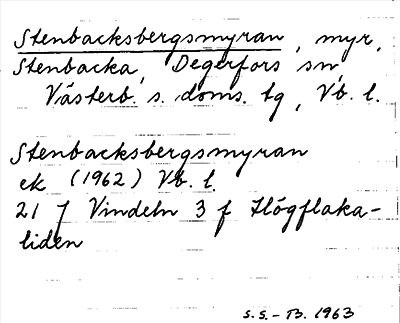 Stenbacksbergsmyran, myr,
Stenbacka, Degerfors sn,
Västerb. s. doms. tg, Vb. l.
Stenbacksbergsmyran
ek (1962) Vb. l.
21 J Vindeln 3 f Högflaka-
liden
S.S.-B. 1963